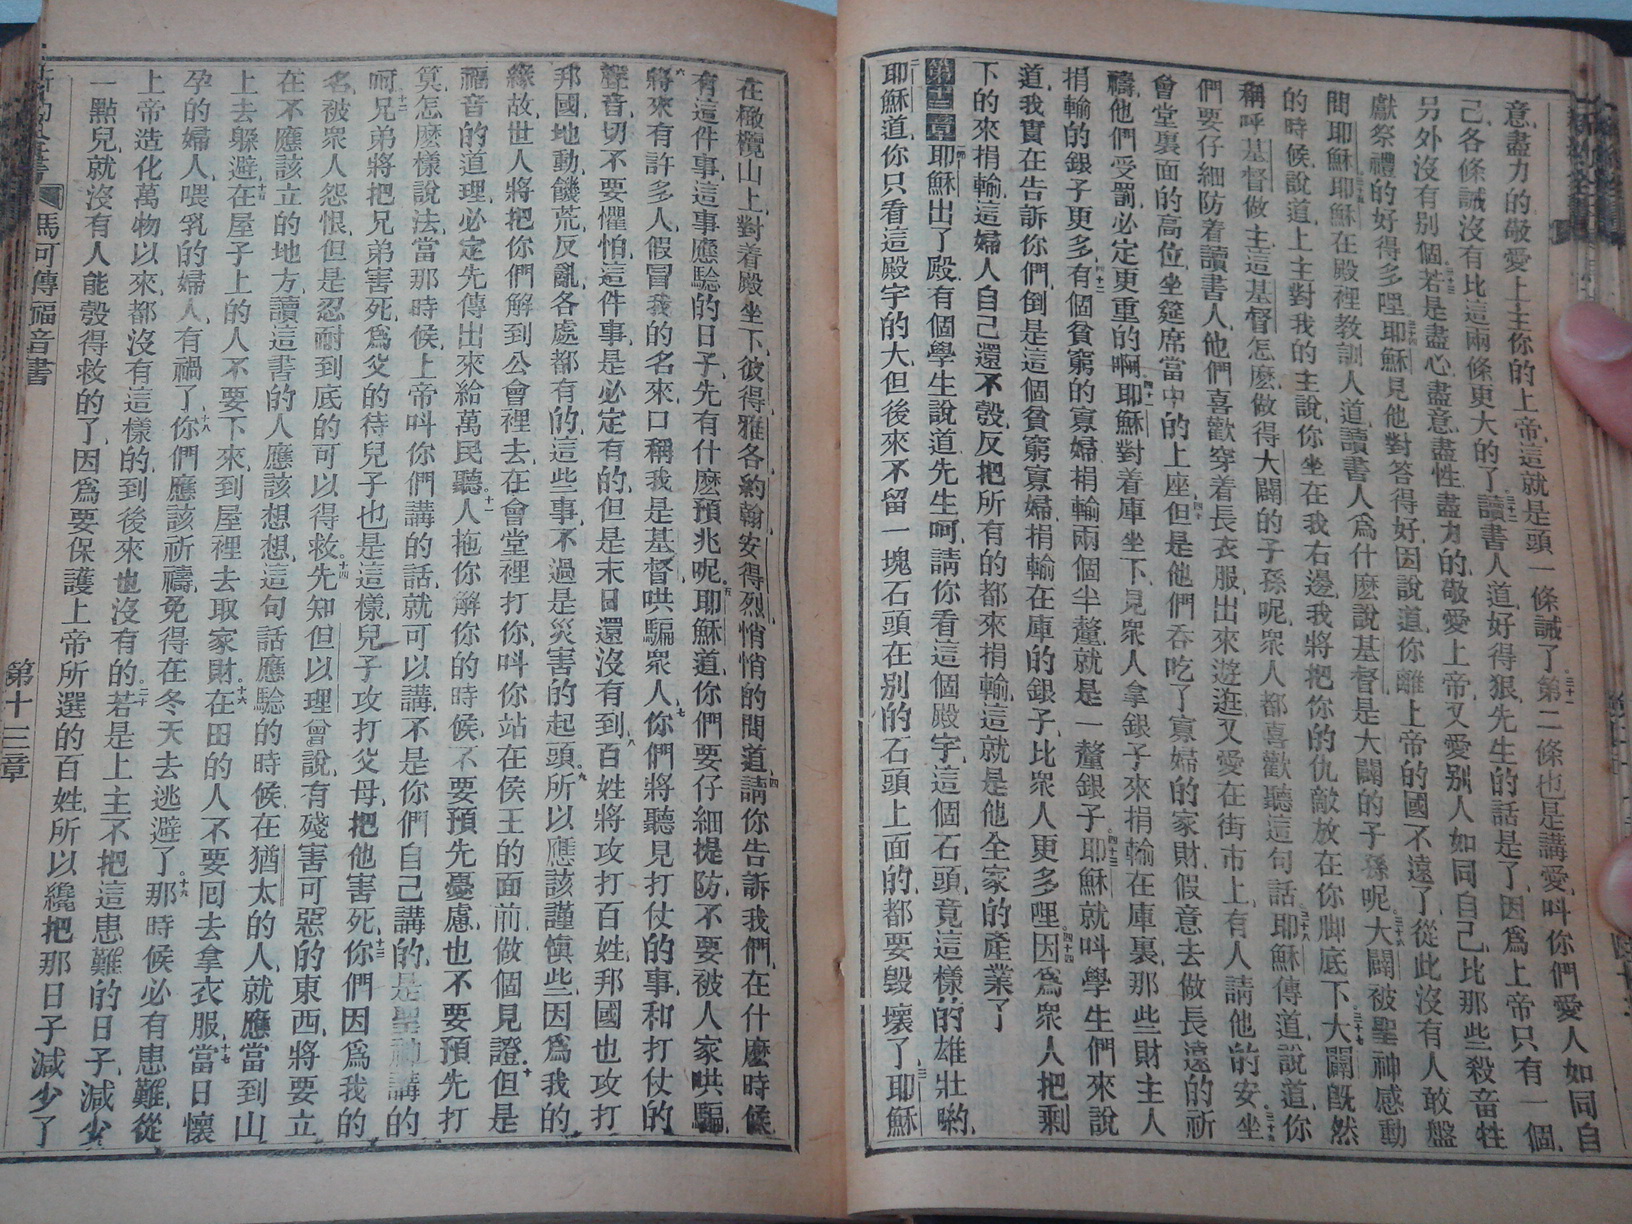 意、盡力的敬愛上主你的上帝、這就是頭一條誡了、三十一第二條也是講愛、叫你們愛人如同自
己、各條誡沒有比這兩條更大的了、三十二讀書人道、好得狠、先生的話是了、因爲上帝只有一個、
另外沒有別個、三十三若是盡心、盡意、盡性、盡力的敬愛上帝、又愛別人如同自己、比那些殺畜牲
獻祭禮的好得多哩、三十四耶穌見他對答得好、因說道、你離上帝的國不遠了、從此沒有人敢盤
問耶穌、三十五耶穌在殿裡教訓人道、讀書人爲什麽說基督是大闢的子孫呢、三十六大闢被聖神感動
的時候、說道、上主對我的主說、你坐在我右邊、我將把你的仇敵放在你脚底下、三十七大闢既然
稱呼基督做主、這基督怎麽做得大闢的子孫呢、衆人都喜歡聽這句話、三十八耶穌傳道、說道、你
們要仔細防着讀書人、他們喜歡穿着長衣服、出來遊逛、又愛在街市上、有人請他的安、三十九坐
會堂裏面的高位、坐筵席當中的上座、四十但是他們吞吃了寡婦的家財、假意去做長遠的祈
禱、他們受罰必定更重的啊、四十一耶穌對着庫坐下、見衆人拿銀子來捐輸在庫裏、那些財主人
捐輸的銀子更多、四十二有個貧窮的寡婦、捐輸兩個半釐、就是一釐銀子、四十三耶穌就叫學生們來說
道、我實在告訴你們、倒是這個貧窮寡婦、捐輸在庫的銀子、比衆人更多哩、四十四因爲衆人把剩
下的來捐輸、這婦人自己還不彀、反把所有的都來捐輸、這就是他全家的產業了
第十三章 耶穌出了殿、有個學生說道、先生呵、請你看這個殿宇、這個石頭、竟這樣的雄壯喲、
二耶穌道、你只看這殿宇的大、但後來不留一塊石頭在別的石頭上面的、都要毀壞了、三耶穌
在橄欖山上、對着殿坐下、彼得雅各約翰安得烈悄悄的問道、四請你告訴我們、在什麽時候
有這件事、這事應驗的日子、先有什麽預兆呢、五耶穌道、你們要仔細提防、不要被人家哄騙、
六將來有許多人、假冒我的名來、口稱我是基督、哄騙衆人、七你們將聽見打仗的事、和打仗的
聲音、切不要懼怕、這件事是必定有的、但是末日還沒有到、八百姓將攻打百姓、邦國也攻打
邦國、地動、饑荒、反亂、各處都有的、這些事、不過是災害的起頭、九所以應該謹愼些、因爲我的
緣故、世人將把你們解到公會裡去、在會堂裡打你、叫你站在侯王的面前、做個見證、十但是
福音的道理、必定先傳出來給萬民聽、十一人拖你解你的時候、不要預先憂慮、也不要預先打
算怎麽樣說法、當那時候、上帝叫你們講的話、就可以講、不是你們自己講的、是聖神講的
呵、十二兄弟將把兄弟害死、爲父的待兒子也是這樣、兒子攻打父母、把他害死、十三你們因爲我的
名、被衆人怨恨、但是忍耐到底的、可以得救、十四先知但以理曾說、有殘害可惡的東西、將要立
在不應該立的地方、讀這書的人應該想想、這句話應驗的時候、在猶太的人、就應當到山
上去躱避、十五在屋子上的人、不要下來、到屋裡去取家財、十六在田的人、不要回去拿衣服、十七當日懷
孕的婦人、喂乳的婦人、有禍了、十八你們應該祈禱、免得在冬天去逃避了、十九那時候必有患難、從
上帝造化萬物以來、都沒有這樣的、到後來也沒有的、二十若是上主不把這患難的日子減少
一點兒、就沒有人能彀得救的了、因爲要保護上帝所選的百姓、所以纔把那日子減少了
馬可傳福音書 第十三章